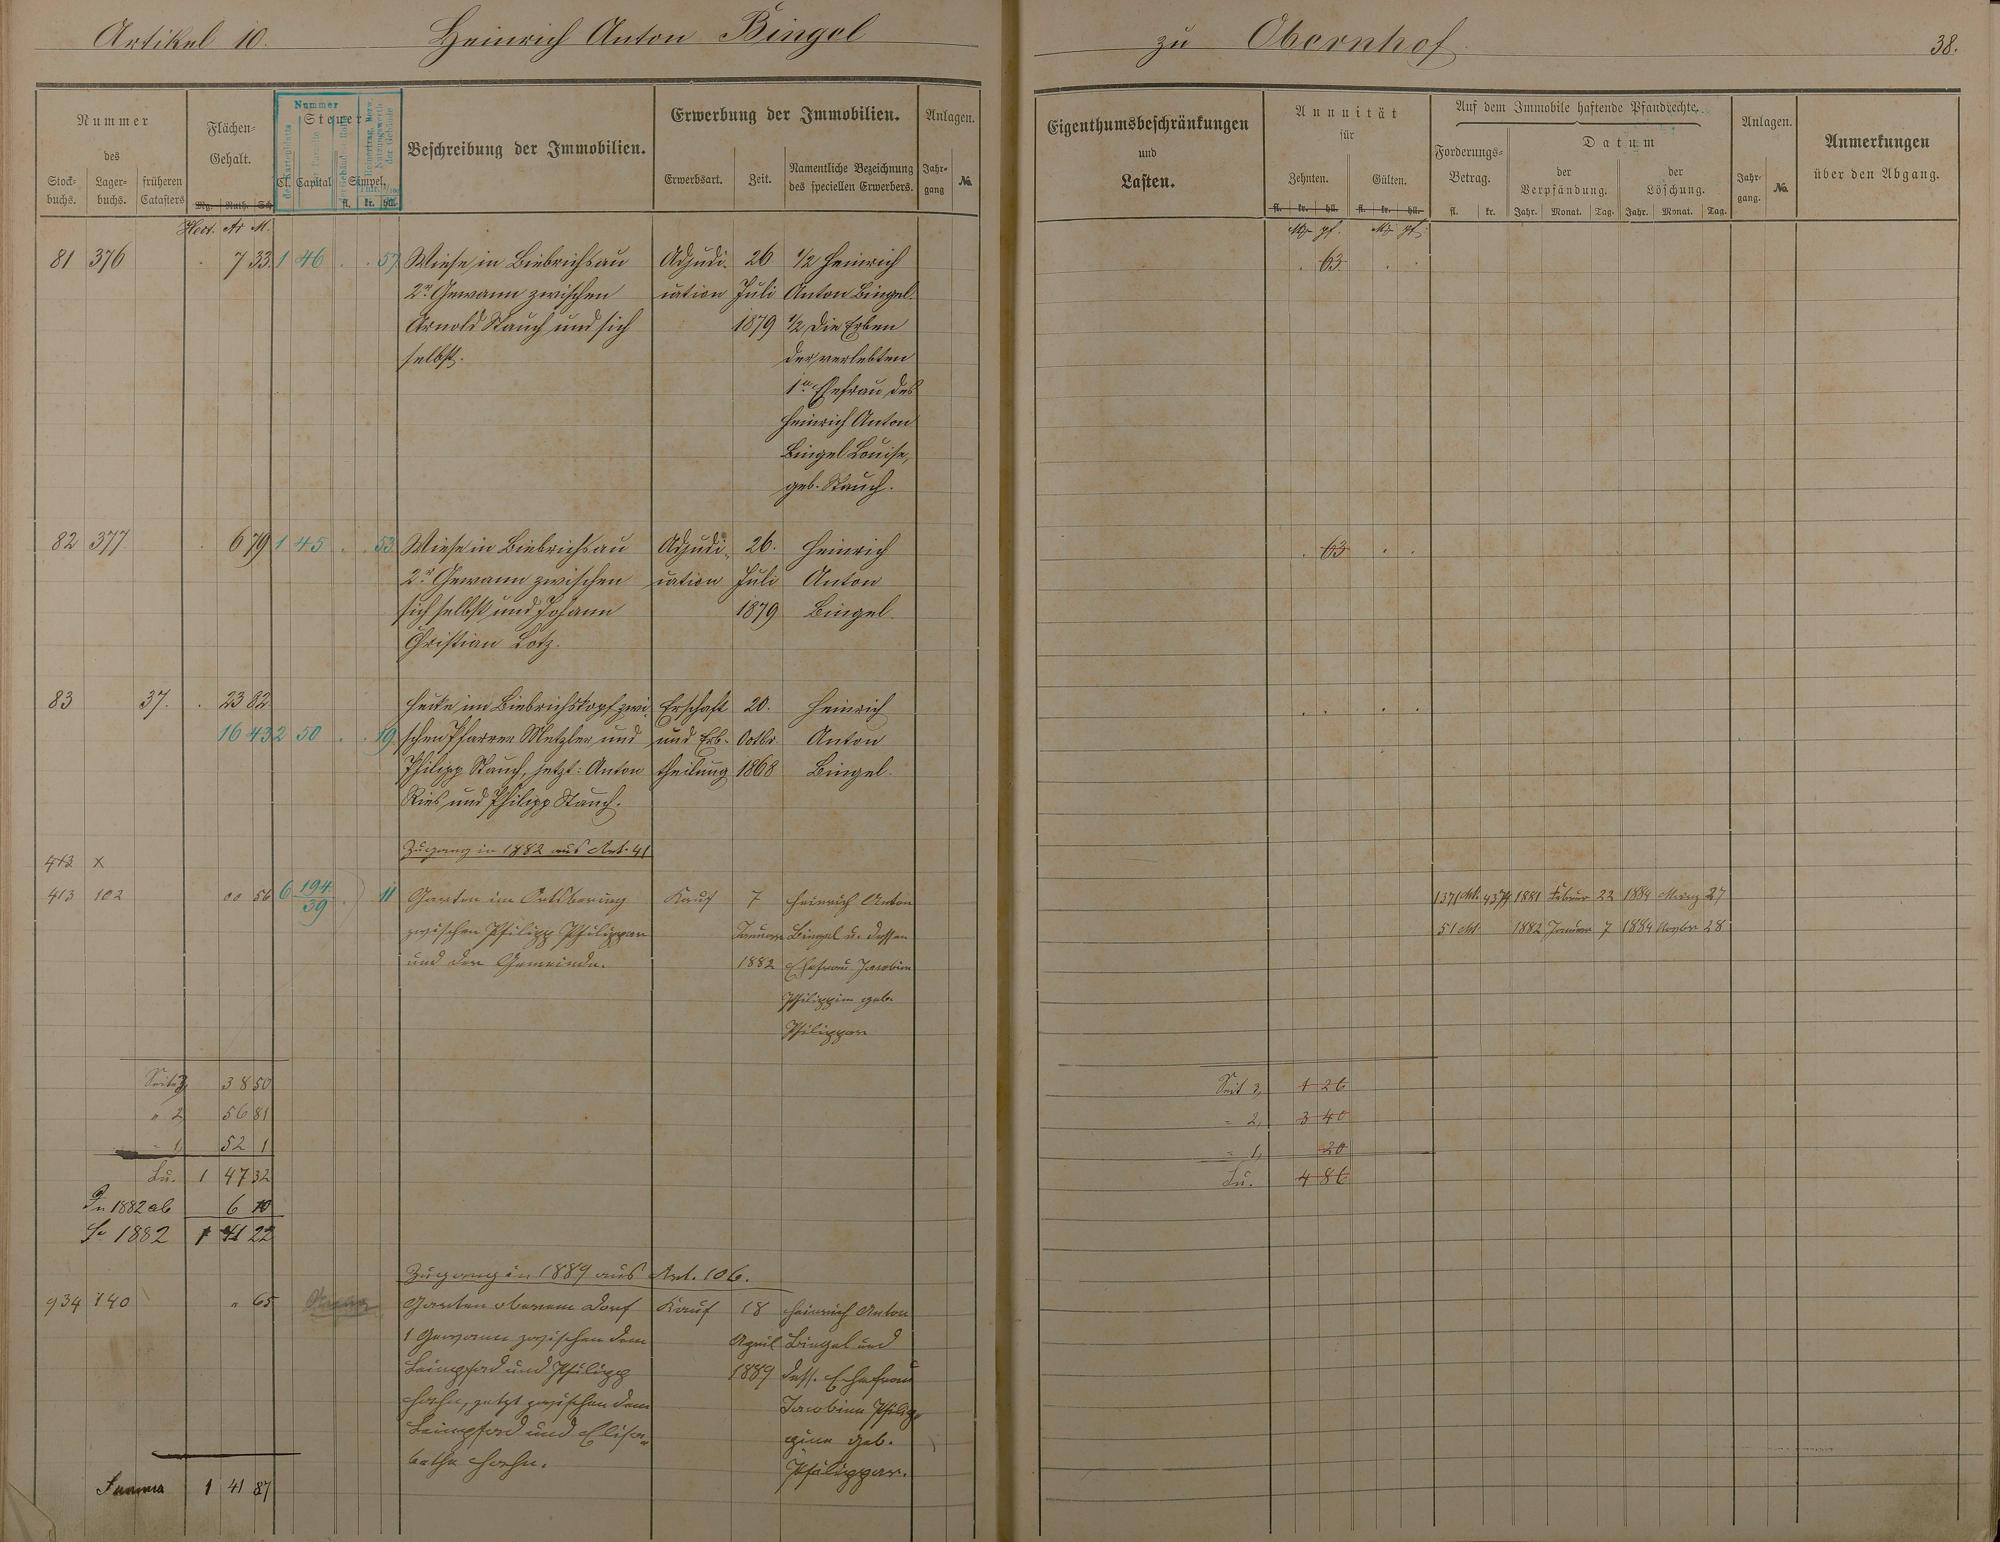 Artikel 10. Heinrich Anton Bingel zu Obernhof. 38.
Nummer
des
Stock-buchs. Lager-buchs. früheren Catasters
Flächen-Gehalt.
Mg. Ruth. Sch.
Steuer
Cl. Capital Simpel.
fl. kr. hll.
Nummer
Beschreibung der Immobilien.
Erwerbung der Immobilien.
Erwerbsart. Zeit. Namentliche Bezeichnung des speciellen Erwerbers.
Anlagen.
Jahr-gang №.
Eigenthumsbeschränkungen
und
Lasten.
Annuität
für
Zehnten. Gülten.
fl. kr. hll. fl. kr. hll.
Auf dem Immobile haftende Pfandrechte.
Forderungs-Betrag.
fl. kr.
Datum
der Verpfändung. der Löschung.
Jahr. Monat. Tag. Jahr. Monat. Tag.
Anlagen.
Jahr-gang. №.
Anmerkungen
über den Abgang.
Hect. Ar M.
Mk pf. Mk pf.
81 376 7 33 1 46 57 Wiese in Biebrichsau Adjudi- 26 1/2 Heinrich 63
2r. Gewann zwischen cation Juli Anton Bingel.
Arnold Stauch und sich 1879 1/2 Die Erben
selbst. der verlebten
1n. Ehefrau des
Heinrich Anton
Bingel Louise,
geb. Stauch.
82 377 6 79 1 45 53 Wiese in Biebrichsau Adjudi- 26. Heinrich 63
2r. Gewann zwischen cation Juli Anton
sich selbst und Johann 1879 Bingel.
Christian Lotz.
83 37. 23 82 Hecke im Biebrichskopf zwi- Erbschaft 20. Heinrich
16 43 2 50 19 schen Pfarrer Metzler und und Erb- Octbr. Anton
Philipp Stauch, jetzt: Anton theilung 1868 Bingel.
Ries und Philipp Stauch.
Zugang in 1882 aus Art. 41
412 x
413 102 00 56 6 194/39 11 Garten im Ortsbering Kauf 7 Heinrich Anton 1371 Mk. 1881 Februar 22 1884 Maerz 27
zwischen Philipp Philippar Januar Bingel u. dessen 51 Mk 1882 Januar 7 1884 Novbr 28
und der Gemeinde. 1882 Ehefrau Jacobine
Philippine geb.
Philippar
Seite 3, 38 50 Seit 3, 1 26
" 2 56 81 " 2, 3 40
" 1, 52 1 " 1, 20
Su. 1 47 32 Su. 4 86
In 1882 ab 6 10
Se 1882 1 41 22
Zugang in 1889 aus Art. 106.
934 140 " 65 Garten oberem Dorf Kauf 18 Heinrich Anton
1 Gewann zwischen dem April Bingel und
Leinpfad und Philipp 1889 dess. Ehefrau
Hahn, jetzt zwischen dem Jacobine Philip-
Leinpfad und Elisa- pine geb.
betha Hahn. Philippar.
Summa 1 41 87